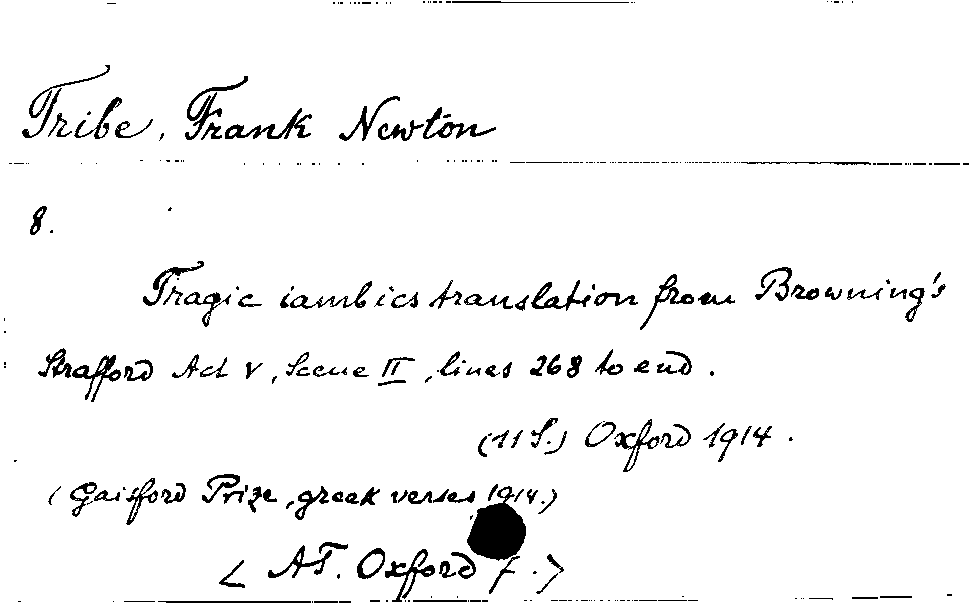 Tribe, Frank Newton
8.
Tragic iambics translation from Browning's
Strafford Act V, Scene II, lines 268 to end.
(11 S.) Oxford 1914.
(Gaisford Prize, greek verses 1914.)
< AT. Oxford 7.>